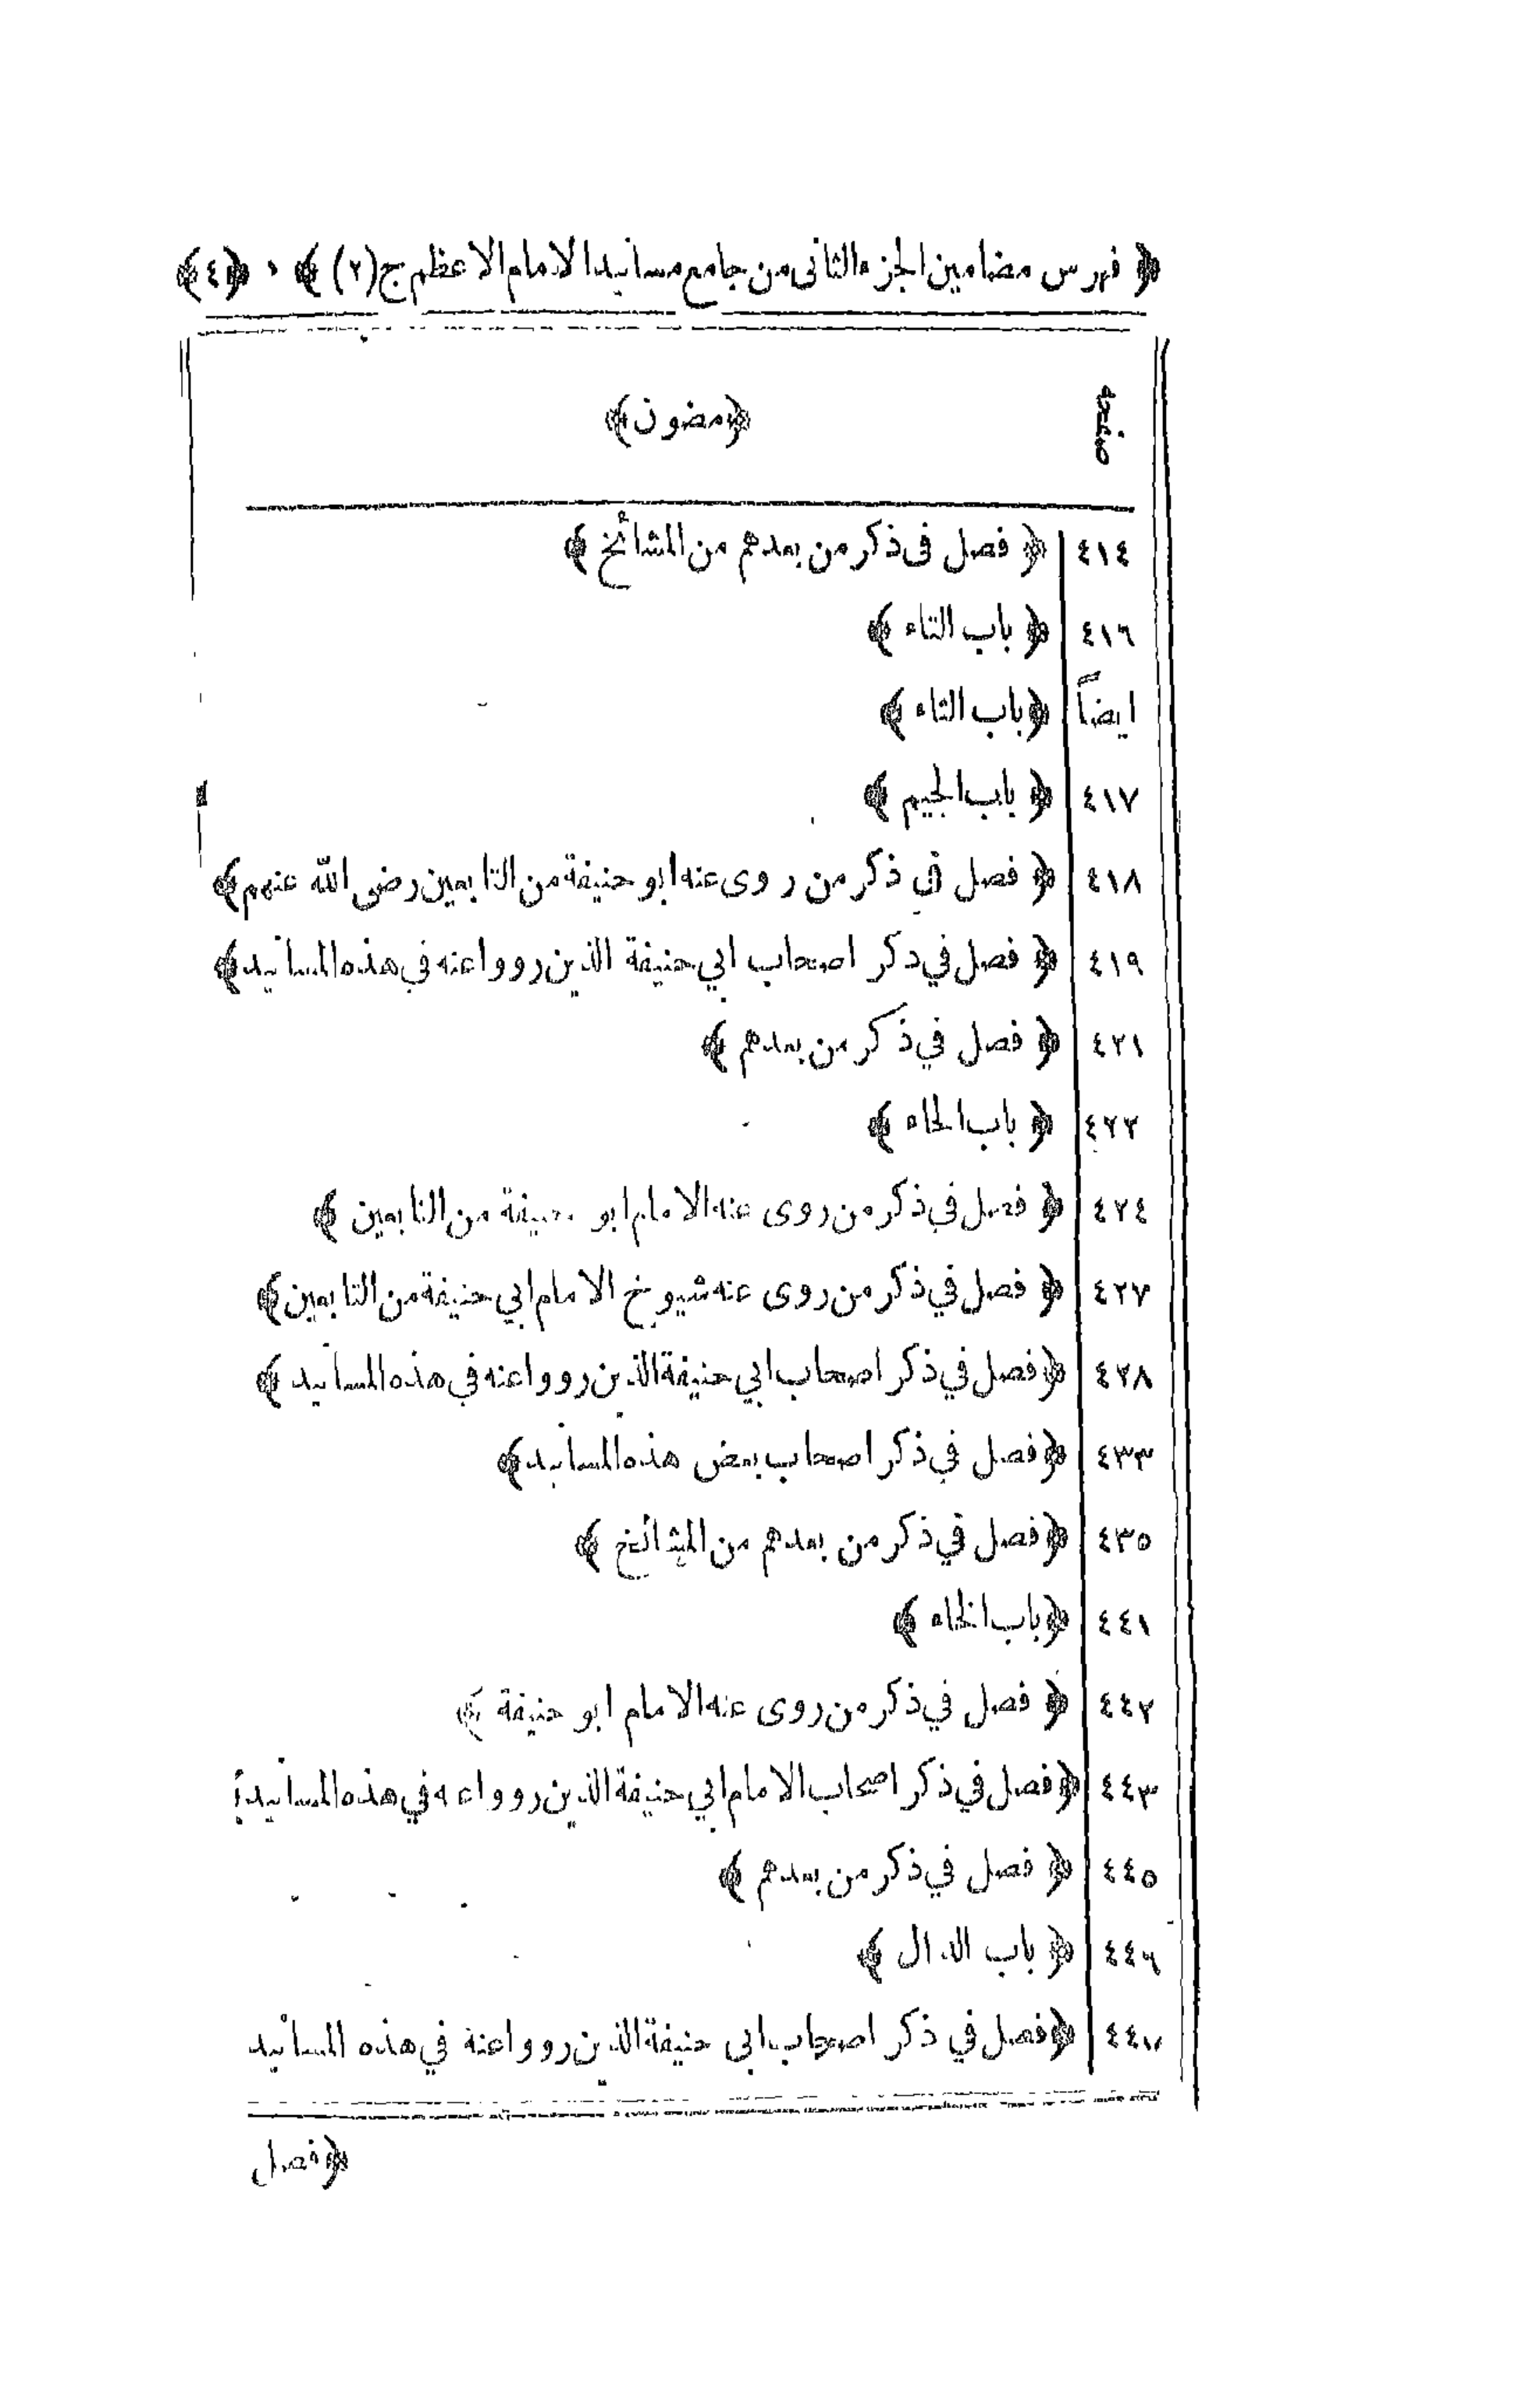 ﴿ فهرس مضامين الجزء الثانى من جامع مسانيد الامام الاعظم ج(٢) ﴾ ﴿٤﴾
صفحه ﴿مضون﴾
٤١٤ ﴿ فصل فى ذكر من بعدهم من المشائخ ﴾
٤١٦ ﴿ باب التاء ﴾
ايضاً ﴿باب الثاء ﴾
٤١٧ ﴿ باب الجيم ﴾
٤١٨ ﴿ فصل في ذكر من روى عنه ابو حنيفة من التابعين رضى الله عنهم﴾
٤١٩ ﴿ فصل في ذكر اصحاب ابي حنيفة الذين رووا عنه في هذه المسانيد﴾
٤٢١ ﴿ فصل في ذكر من بعدهم ﴾
٤٢٢ ﴿ باب الحاء ﴾
٤٢٤ ﴿ فصل في ذكر من روى عنه الامام ابو حنيفة من التابعين ﴾
٤٢٧ ﴿ فصل في ذكر من روى عنه شيوخ الامام ابي حنيفة من التابعين﴾
٤٢٨ ﴿فصل في ذكر اصحاب ابي حنيفة الذين رووا عنه في هذه المسانيد ﴾
٤٣٣ ﴿فصل في ذكر اصحاب بعض هذه المسانيد﴾
٤٣٥ ﴿فصل في ذكر من بعدهم من المشائخ ﴾
٤٤١ ﴿باب الخاء ﴾
٤٤٢ ﴿ فصل في ذكر من روى عنه الامام ابو حنيفة ﴾
٤٤٣ ﴿فصل في ذكر اصحاب الامام ابي حنيفة الذين رووا عنه في هذه المسانيد﴾
٤٤٥ ﴿ فصل في ذكر من بعدهم ﴾
٤٤٦ ﴿ باب الدال ﴾
٤٤٧ ﴿فصل في ذكر اصحاب ابى حنيفة الذين رووا عنة في هذه المسانيد
﴿فصل